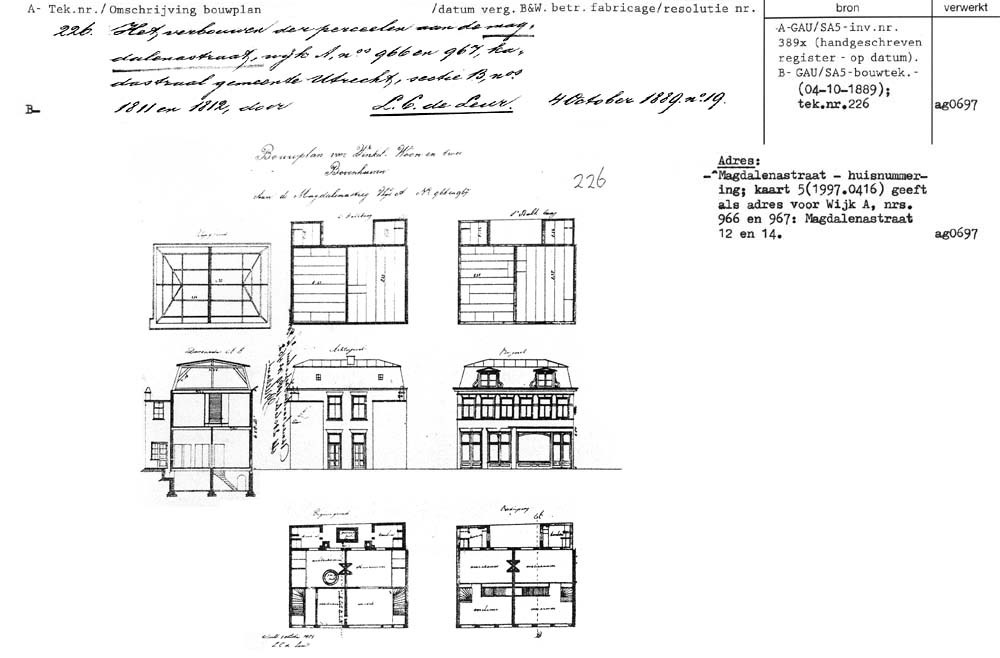 A- Tek.nr./Omschrijving bouwplan /datum verg.B&W.betr.fabricage/resolutie nr.
bron
verwerkt
226. Het verbouwen der perceelen aan de mag-
dalenastraat, wijk A, nos 966 en 967, ka-
dastraal gemeente Utrecht, sectie B, nos
B- 1811 en 1812, door L. C. de Leur. 4 October 1889. no 19.
A-GAU/SA5-inv.nr.
389x (handgeschreven
register - op datum).
B- GAU/SA5-bouwtek.-
(04-10-1889);
tek.nr.226
ag0697
Bouwplan voor Winkel. Woon en twee
Bovenhuizen
aan de Magdalenasteeg Wijk A No 966 en 967
226
Adres:
-^Magdalenastraat - huisnummer-
ing; kaart 5(1997.0416) geeft
als adres voor Wijk A, nrs.
966 en 967: Magdalenastraat
12 en 14.
ag0697
Doorsnede A B
Achtergevel
Voorgevel
Begane grond
L.C. de Leur